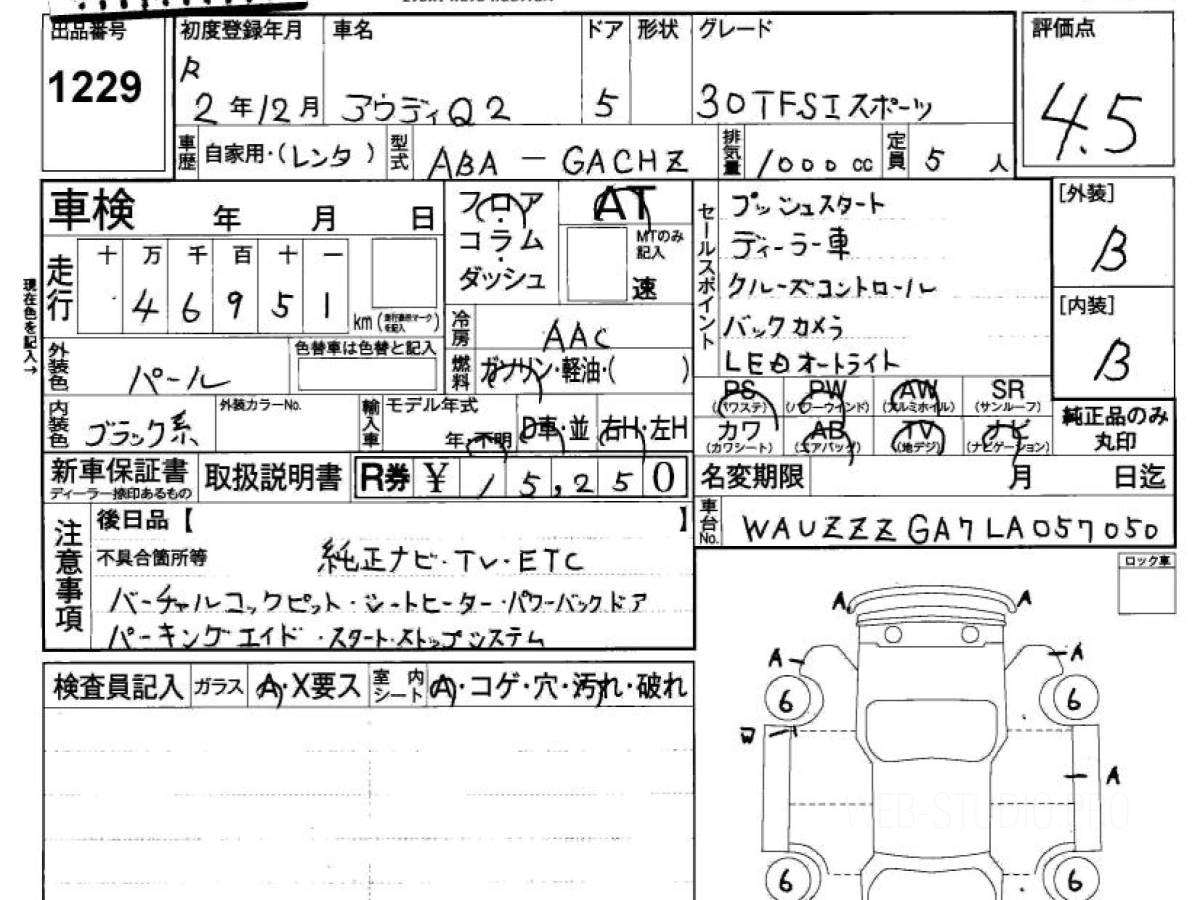 出品番号 初度登録年月 車名 ドア 形状 グレード 評価点
1229 R 2年12月 アウディQ2 5 30TFSIスポーツ 4.5
車歴 自家用・(レンタ) 型式 ABA-GACHZ 排気量 1000cc 定員 5人
車検 年 月 日 フロア AT セールスポイント プッシュスタート [外装]
コラム MTのみ記入 ディーラー車 B
走行 十 万 千 百 十 一 ダッシュ 速 クルーズコントロール [内装]
現在色を記入→ 4 6 9 5 1 km 冷房 AAC バックカメラ B
外装色 パール 色替車は色替と記入 燃料 ガソリン・軽油・( ) LEDオートライト
PS (パワステ) PW (パワーウインド) AW (アルミホイル) SR (サンルーフ)
内装色 ブラック系 外装カラーNo. 輸入車 モデル年式 年・不明 D車・並 右H・左H カワ (カワシート) AB (エアバッグ) TV (地デジ) ナビ (ナビゲーション) 純正品のみ丸印
新車保証書 ディーラー捺印あるもの 取扱説明書 R券 ¥ 15,250 名変期限 月 日迄
注意事項 後日品【 】 車台No. WAUZZZGA7LA057050
不具合箇所等 純正ナビ・TV・ETC
バーチャルコックピット・シートヒーター・パワーバックドア
パーキングエイド・スタート・ストップシステム
ロック車
検査員記入 ガラス A・X要ス 室内シート A・コゲ・穴・汚れ・破れ
A A
A A
6 6
W
A
WEB-STUDIO.PRO
6 6